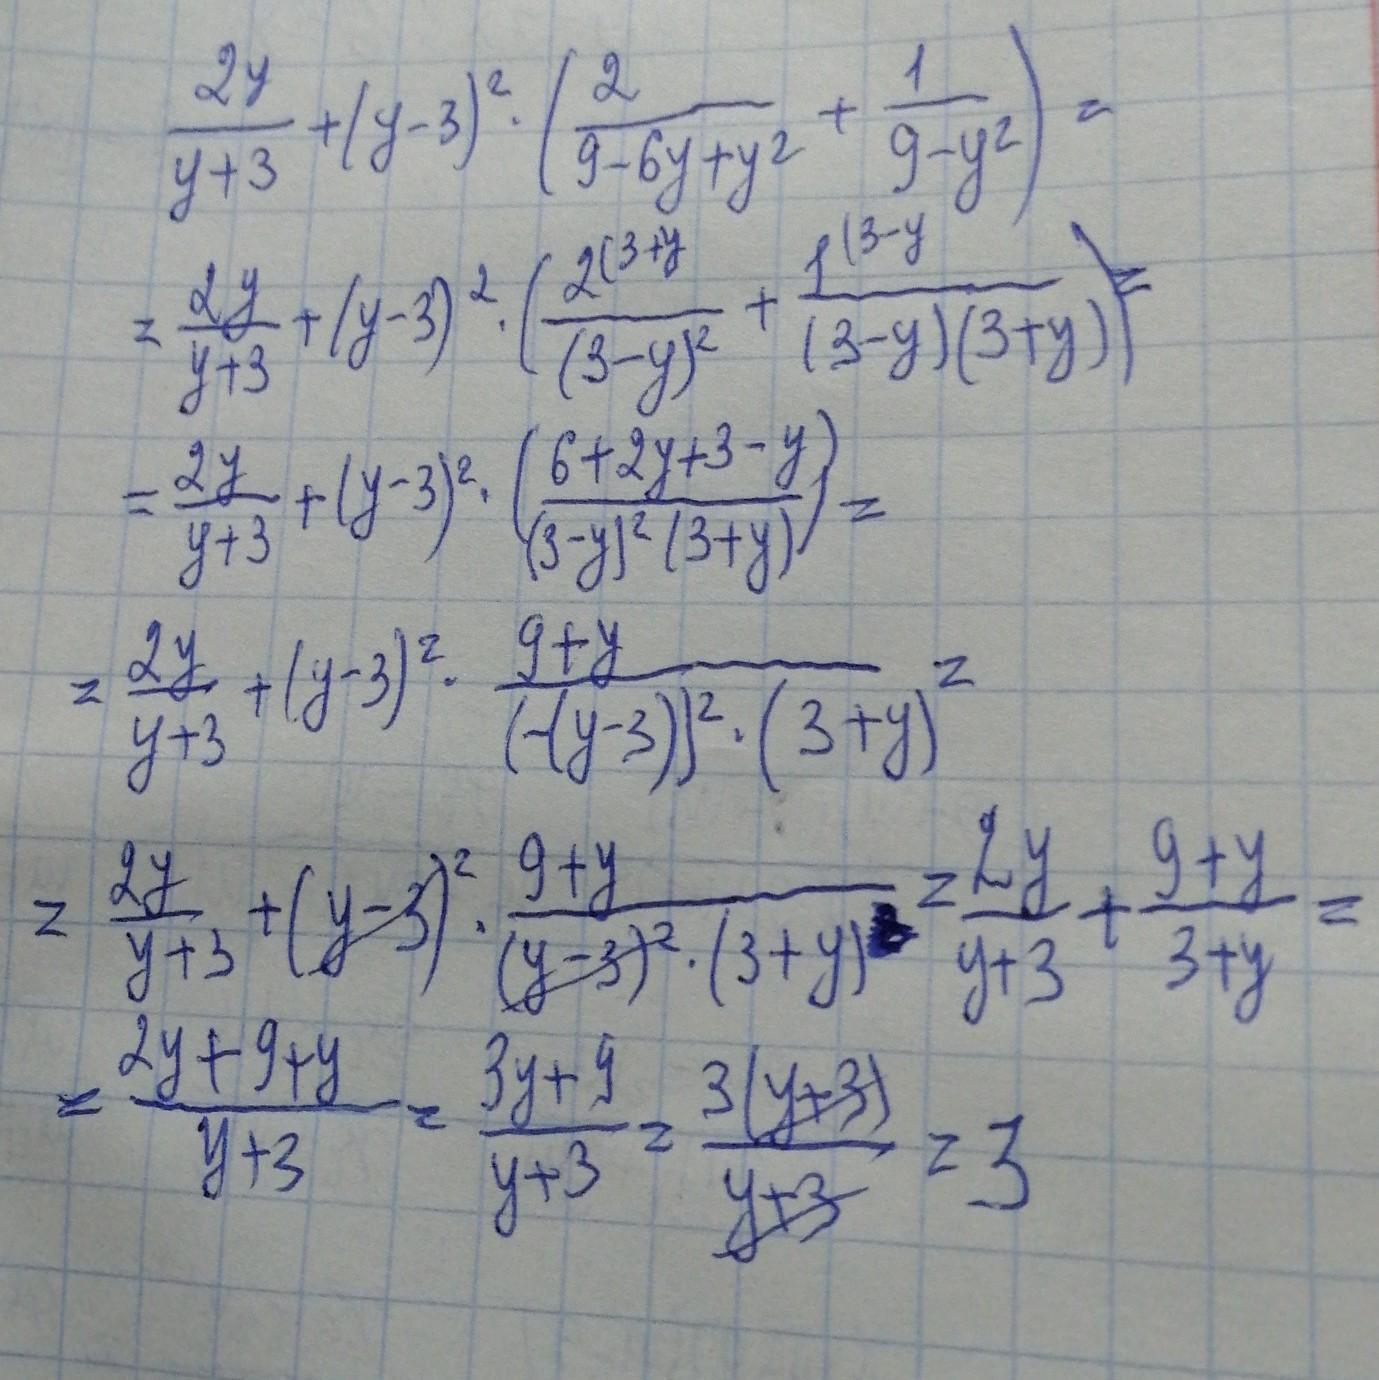 2y/(y+3) + (y-3)² · (2/(9-6y+y²) + 1/(9-y²)) =
= 2y/(y+3) + (y-3)² · (2^(3+y/(3-y)² + 1^(3-y/(3-y)(3+y)) =
= 2y/(y+3) + (y-3)² · ((6+2y+3-y)/((3-y)²(3+y))) =
= 2y/(y+3) + (y-3)² · (9+y)/((-(y-3))² · (3+y)) =
= 2y/(y+3) + (y-3)² · (9+y)/((y-3)² · (3+y)) = 2y/(y+3) + (9+y)/(3+y) =
= (2y+9+y)/(y+3) = (3y+9)/(y+3) = 3(y+3)/(y+3) = 3